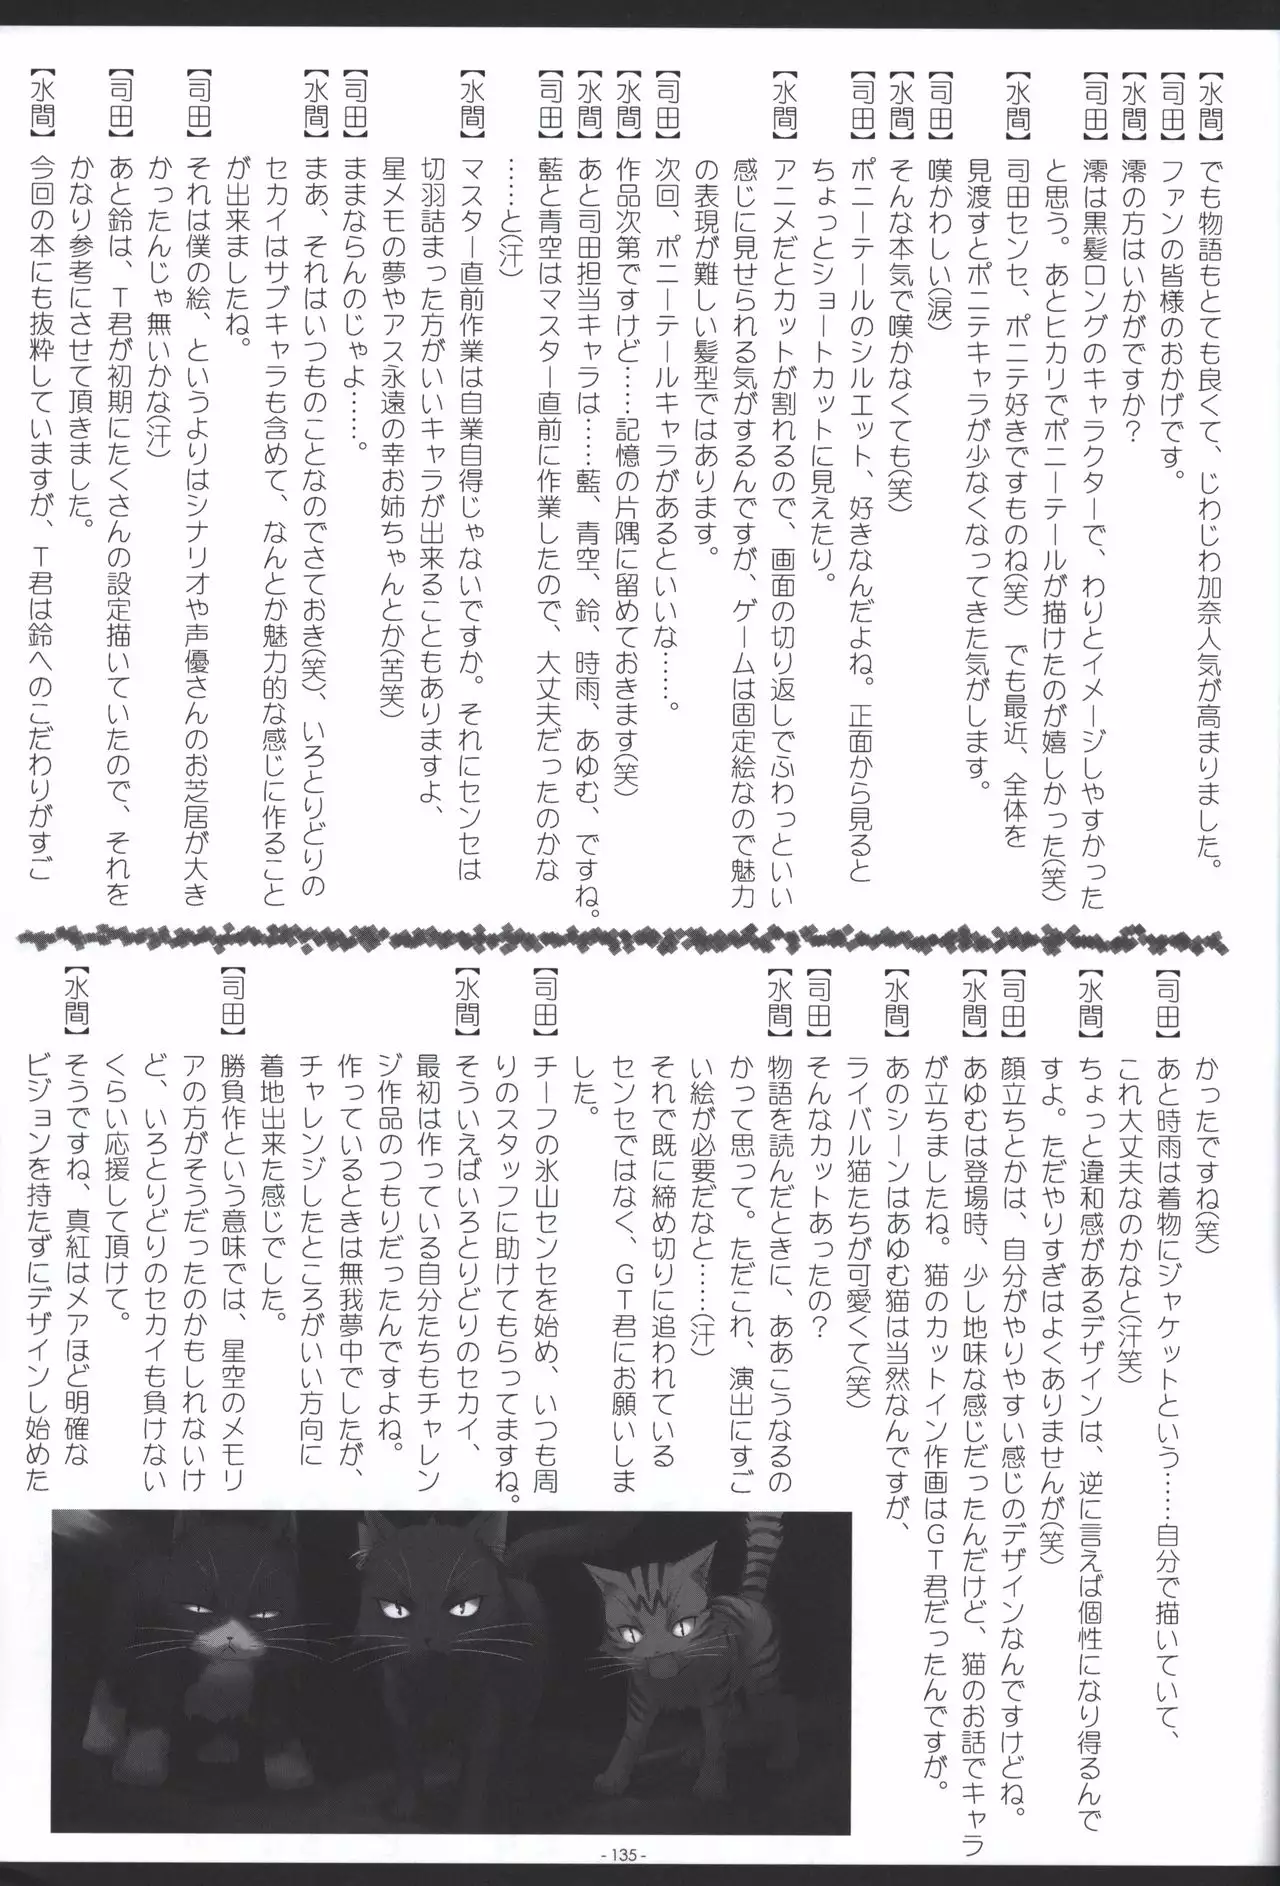 【水間】でも物語もとても良くて、じわじわ加奈人気が高まりました。
【司田】ファンの皆様のおかげです。
【水間】澪の方はいかがですか？
【司田】澪は黒髪ロングのキャラクターで、わりとイメージしやすかった
と思う。あとヒカリでポニーテールが描けたのが嬉しかった(笑)
【水間】司田センセ、ポニテ好きですものね(笑)　でも最近、全体を
見渡すとポニテキャラが少なくなってきた気がします。
【司田】嘆かわしい(涙)
【水間】そんな本気で嘆かなくても(笑)
【司田】ポニーテールのシルエット、好きなんだよね。正面から見ると
ちょっとショートカットに見えたり。
【水間】アニメだとカットが割れるので、画面の切り返しでふわっといい
感じに見せられる気がするんですが、ゲームは固定絵なので魅力
の表現が難しい髪型ではあります。
【司田】次回、ポニーテールキャラがあるといいな……。
【水間】作品次第ですけど……記憶の片隅に留めておきます(笑)
【水間】あと司田担当キャラは……藍、青空、鈴、時雨、あゆむ、ですね。
【司田】藍と青空はマスター直前に作業したので、大丈夫だったのかな
……と(汗)
【水間】マスター直前作業は自業自得じゃないですか。それにセンセは
切羽詰まった方がいいキャラが出来ることもありますよ、
星メモの夢やアス永遠の幸お姉ちゃんとか(苦笑)
【司田】ままならんのじゃよ……。
【水間】まあ、それはいつものことなのでさておき(笑)、いろとりどりの
セカイはサブキャラも含めて、なんとか魅力的な感じに作ること
が出来ましたね。
【司田】それは僕の絵、というよりはシナリオや声優さんのお芝居が大き
かったんじゃ無いかな(汗)
【司田】あと鈴は、Ｔ君が初期にたくさんの設定描いていたので、それを
かなり参考にさせて頂きました。
【水間】今回の本にも抜粋していますが、Ｔ君は鈴へのこだわりがすご
かったですね(笑)
【司田】あと時雨は着物にジャケットという……自分で描いていて、
これ大丈夫なのかなと(汗笑)
【水間】ちょっと違和感があるデザインは、逆に言えば個性になり得るんで
すよ。ただやりすぎはよくありませんが(笑)
【司田】顔立ちとかは、自分がやりやすい感じのデザインなんですけどね。
【水間】あゆむは登場時、少し地味な感じだったんだけど、猫のお話でキャラ
が立ちましたね。猫のカットイン作画はＧＴ君だったんですが。
【水間】あのシーンはあゆむ猫は当然なんですが、
ライバル猫たちが可愛くて(笑)
【司田】そんなカットあったの？
【水間】物語を読んだときに、ああこうなるの
かって思って。ただこれ、演出にすご
い絵が必要だなと……(汗)
それで既に締め切りに追われている
センセではなく、ＧＴ君にお願いしま
した。
【司田】チーフの氷山センセを始め、いつも周
りのスタッフに助けてもらってますね。
【水間】そういえばいろとりどりのセカイ、
最初は作っている自分たちもチャレン
ジ作品のつもりだったんですよね。
作っているときは無我夢中でしたが、
チャレンジしたところがいい方向に
着地出来た感じでした。
【司田】勝負作という意味では、星空のメモリ
アの方がそうだったのかもしれないけ
ど、いろとりどりのセカイも負けない
くらい応援して頂けて。
【水間】そうですね、真紅はメアほど明確な
ビジョンを持たずにデザインし始めた
- 135 -